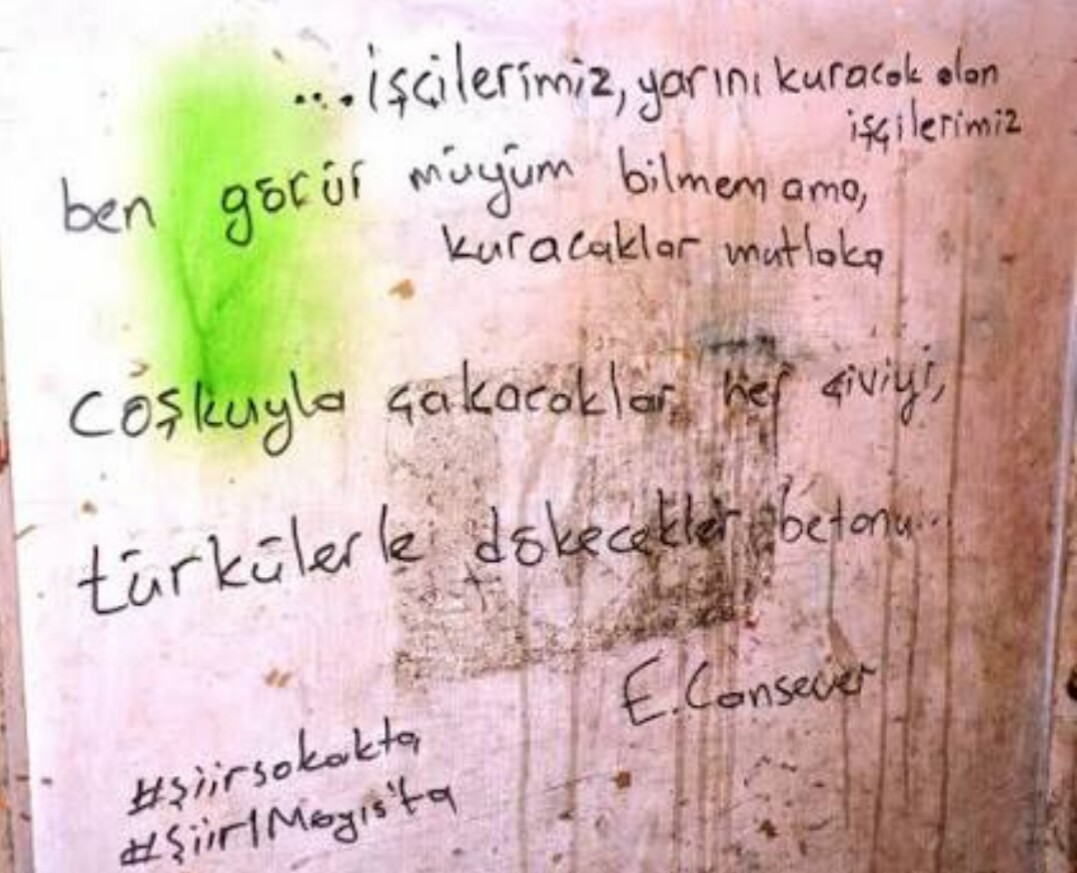 ...işçilerimiz, yarını kuracak olan
işçilerimiz
ben görür müyüm bilmem ama,
kuracaklar mutlaka
coşkuyla çakacaklar her çiviyi,
türkülerle dökecekler betonu...
E. Cansever
#şiirsokakta
#şiir1Mayıs'ta